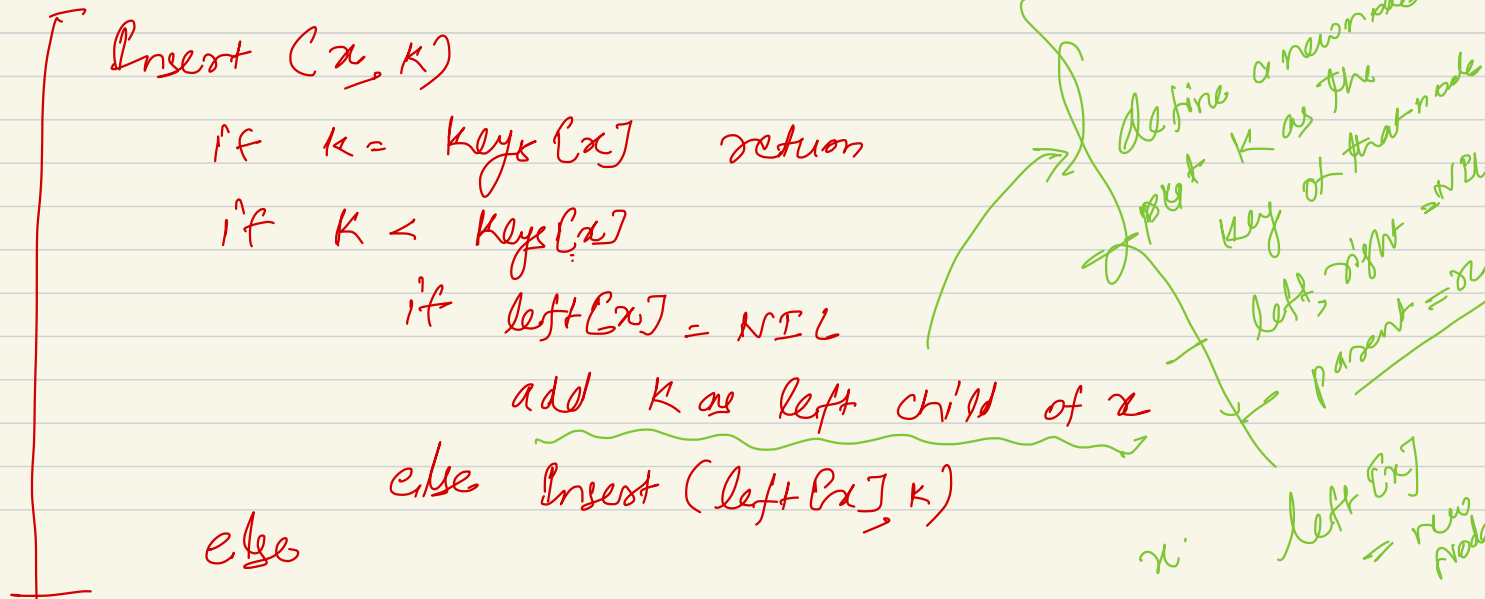 Insert (x, k)
if k = keys[x] return
if k < keys[x]
if left[x] = NIL
add k as left child of x
else Insert (left[x], k)
else
define a new node
put k as the
key of that node
left, right = NIL
parent = x
left [x]
= new
node
x